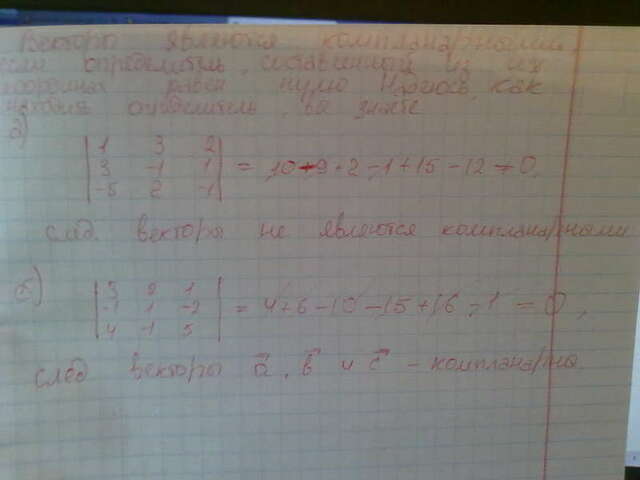 Векторы являются компланарными
если определитель, составленный из их
координат равен нулю Надеюсь, как
определитель, вы знаете
а)
1 3 2
3 -1 1
-5 2 -1
= 10+9+2-1+15-12 ≠ 0.
след. векторы не являются компланарными
б)
5 2 1
-1 1 -2
4 -1 5
= 4+6-10-15+16-1 = 0,
след векторы a⃗, b⃗ и c⃗ - компланарны.